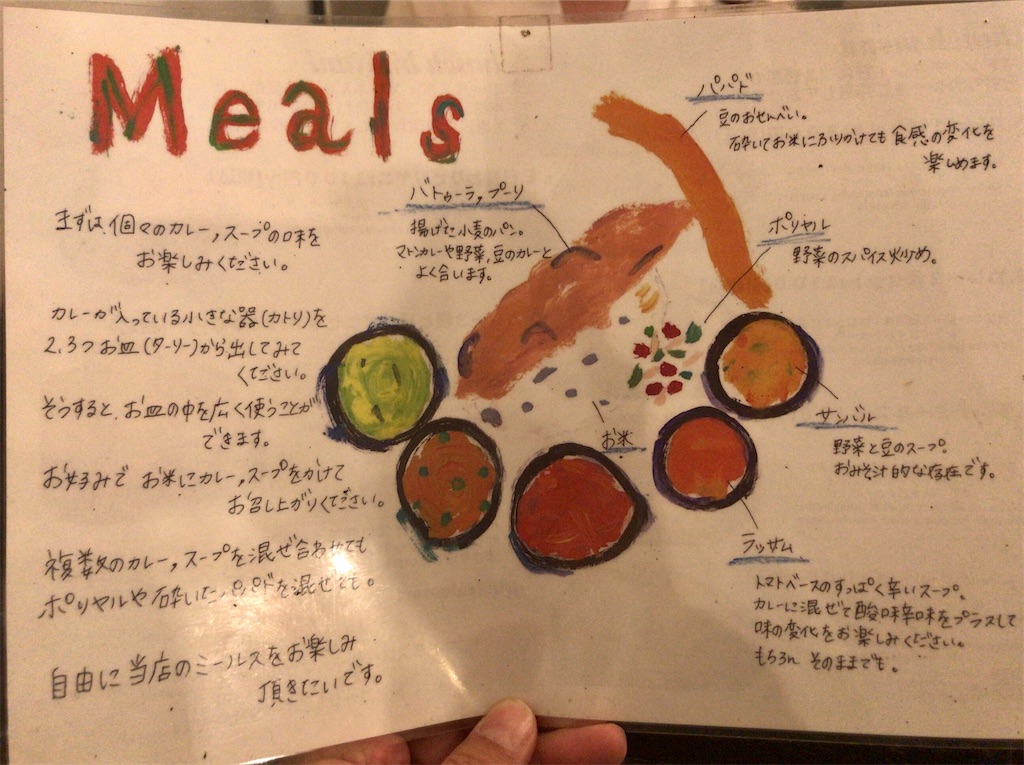 Meals
まずは、個々のカレー,スープの味を
お楽しみください。
カレーが入っている小さな器(カトリ)を
2,3つお皿(ターリー)から出してみて
ください。
そうすると、お皿の中を広く使うことが
できます。
お好みで お米にカレー,スープをかけて
お召し上がりください。
複数のカレー,スープを混ぜ合わせても
ポリヤルや砕いたパパドを混ぜても。
自由に当店のミールスをお楽しみ
頂きたいです。
バトゥーラ,プーリ
揚げた小麦のパン。
マトンカレーや野菜,豆のカレーと
よく合います。
パパド
豆のおせんべい。
砕いてお米にふりかけても食感の変化を
楽しめます。
ポリヤル
野菜のスパイス炒め。
お米
サンバル
野菜と豆のスープ。
おみそ汁的な存在です。
ラッサム
トマトベースのすっぱく辛いスープ。
カレーに混ぜて酸味辛味をプラスして
味の変化をお楽しみください。
もちろん そのままでも。